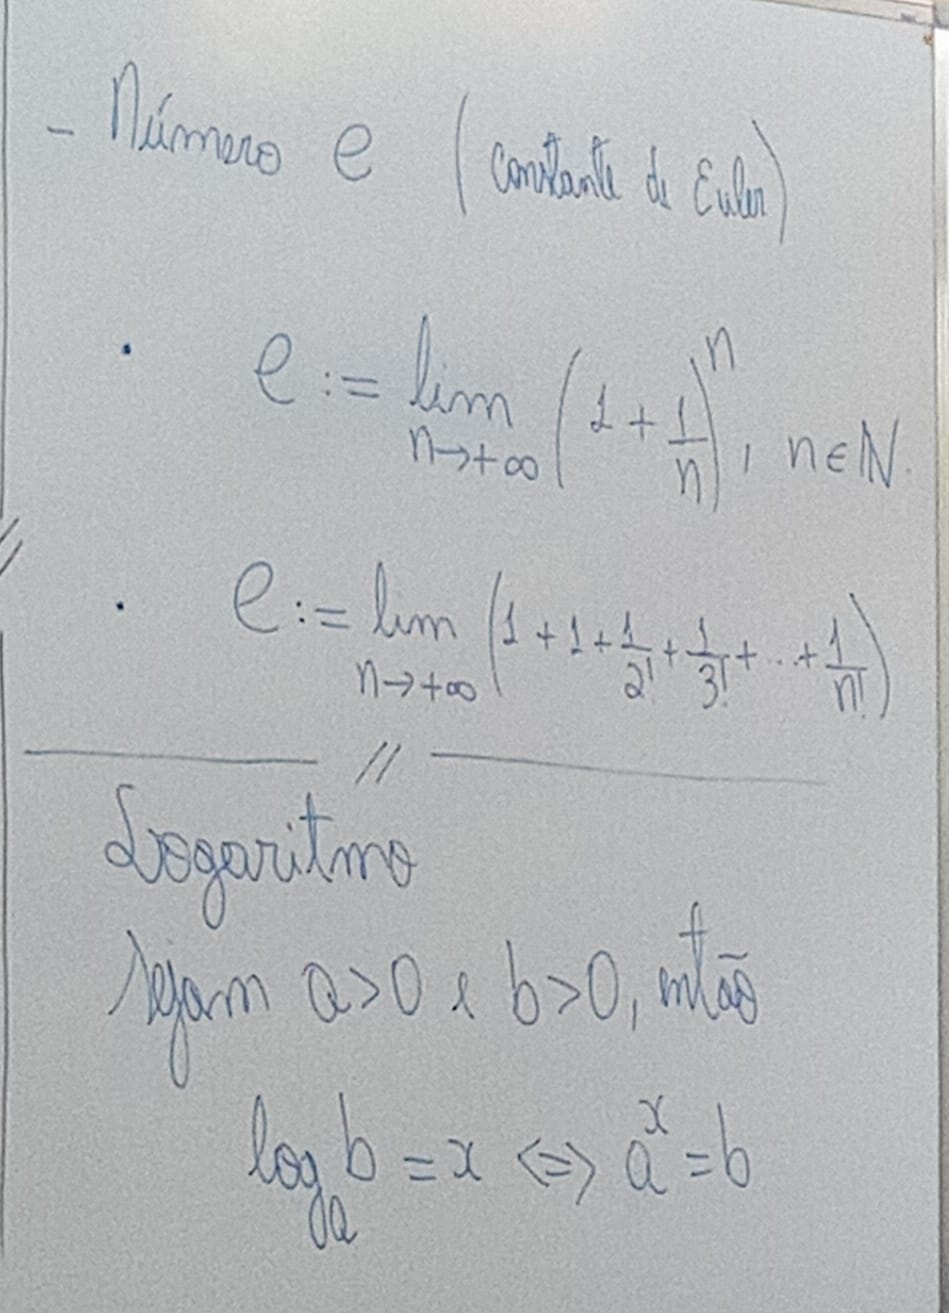 - Número e (constante de Euler)
· e := lim_{n→+∞} (1 + 1/n)^n, n ∈ ℕ.
· e := lim_{n→+∞} (1 + 1 + 1/2! + 1/3! + ... + 1/n!)
Logaritmo
Sejam a>0 e b>0, então
log_a b = x ⇔ a^x = b